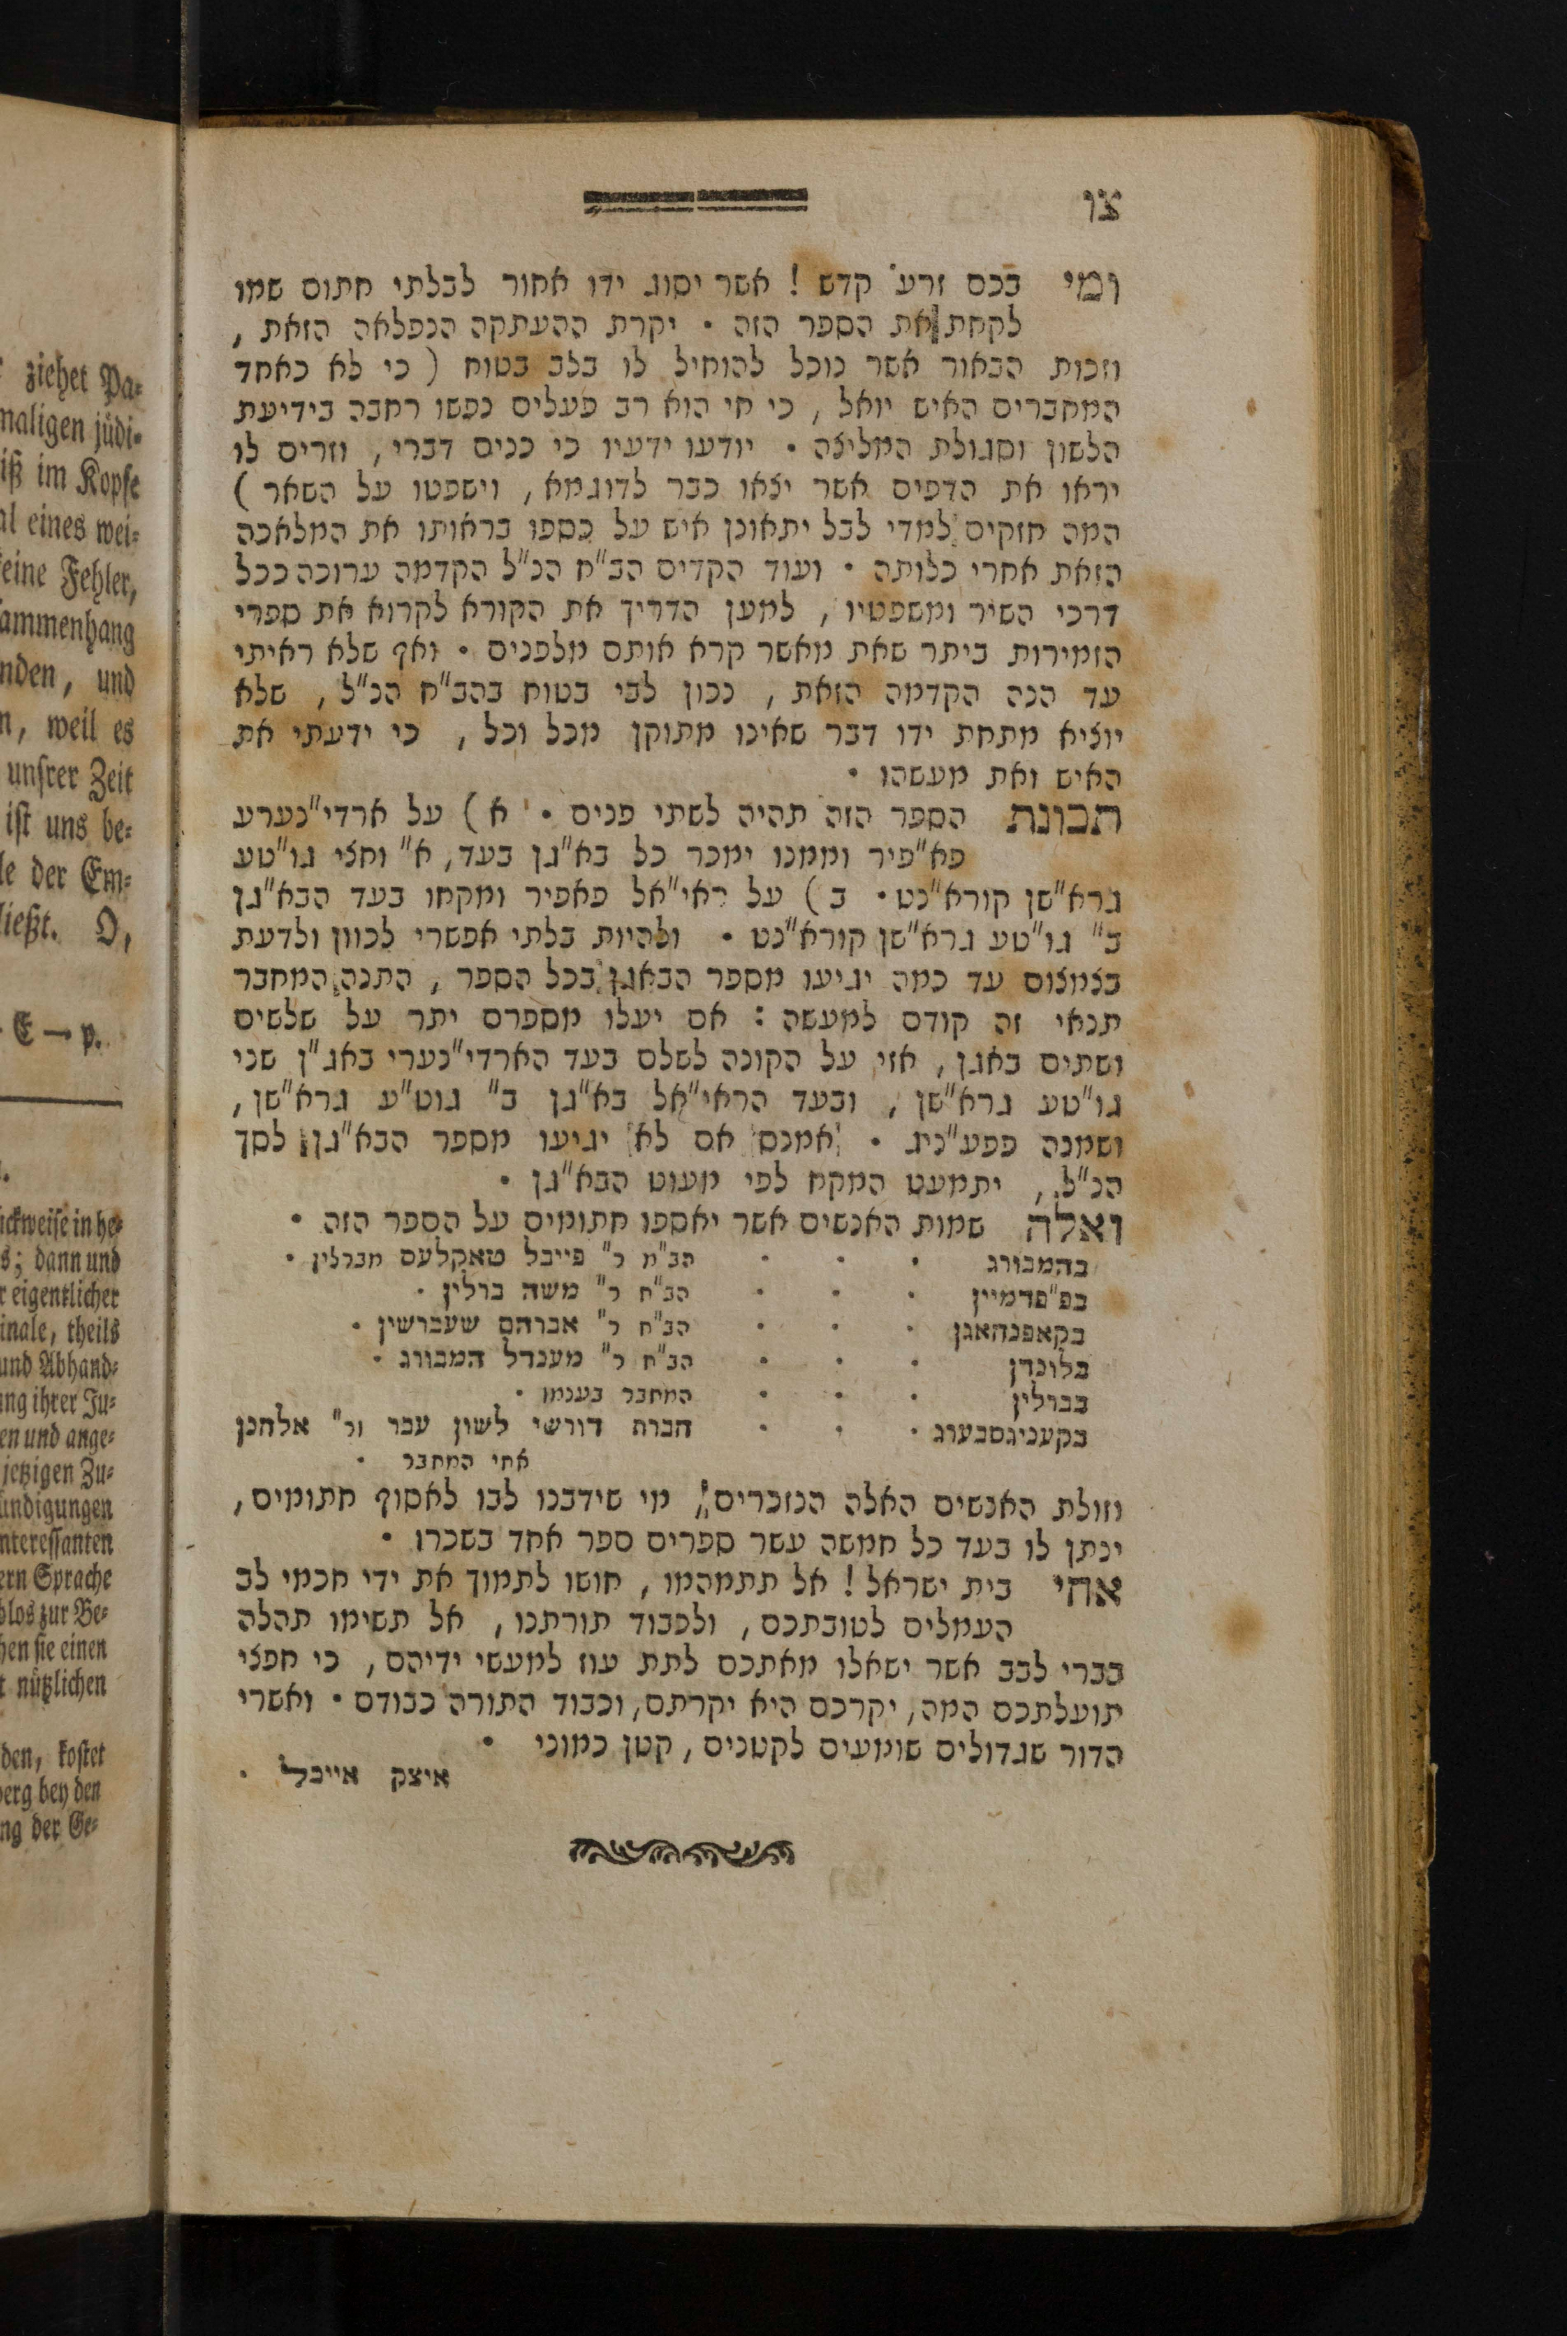 צו
ומי בכם זרע קדש ! אשר יסוג ידו אחור לבלתי חתום שמו
לקחת את הספר הזה • יקרת ההעתקה הנפלאה הזאת ,
וזכות הבאור אשר נוכל להוחיל לו בלב בטוח ( כי לא כאחד
המחברים האיש יואל , כי חי הוא רב פעלים נפשו רחבה בידיעת
הלשון וסגולת המליצה • יודעו ידעיו כי כנים דברי , וזרים לו
יראו את הדפים אשר יצאו כבר לדוגמא , וישפטו על השאר )
המה חזקים למדי לבל יתאונן איש על כספו בראותו את המלאכה
הזאת אחרי כלותה • ועוד הקדים הב"ח הנ"ל הקדמה ערוכה ככל
דרכי השיר ומשפטיו , למען הדריך את הקורא לקרוא את ספרי
הזמירות ביתר שאת מאשר קרא אותם מלפנים • ואף שלא ראיתי
עד הנה הקדמה הזאת , נכון לבי בטוח בהב"ח הנ"ל , שלא
יוציא מתחת ידו דבר שאינו מתוקן מכל וכל , כי ידעתי את
האיש ואת מעשהו •
תכונת הספר הזה תהיה לשתי פנים • א ) על ארדי"נערע
פא"פיר וממנו ימכר כל בא"גן בעד , א" וחצי גו"טע
גרא"שן קורא"נט • ב ) על ראי"אל פאפיר ומקחו בעד הבא"גן
ב" גו"טע גרא"שן קורא"נט • ולהיות בלתי אפשרי לכוון ולדעת
בצמצום עד כמה יגיעו מספר הבאגן בכל הספר , התנה המחבר
תנאי זה קודם למעשה : אם יעלו מספרם יתר על שלשים
ושתים באגן , אזי על הקונה לשלם בעד הארדי"נערי באג"ן שני
גו"טע גרא"שן , ובעד הראי"אל בא"גן ב" גוט"ע גרא"שן ,
ושמנה פפע"ניג • אמנם אם לא יגיעו מספר הבא"גן לסך
הנ"ל , יתמעט המקח לפי מעוט הבא"גן •
ואלה שמות האנשים אשר יאספו חתומים על הספר הזה •
בהמבורג • • • הב"ח ר" פייבל טאקלעס מברלין •
בפ"פדמיין • • • הב"ח ר" משה ברלין •
בקאפנהאגן • • • הב"ח ר" אברהם שעברשין •
בלונדן • • • הב"ח ר" מענדל המבורג •
בברלין • • • המחבר בעצמו •
בקעניגסבערג • • • חברת דורשי לשון עבר ור" אלחנן
אחי המחבר •
וזולת האנשים האלה הנזכרים , מי שידבנו לבו לאסוף חתומים ,
ינתן לו בעד כל חמשה עשר ספרים ספר אחד בשכרו •
אחי בית ישראל ! אל תתמהמו , חושו לתמוך את ידי חכמי לב
העמלים לטובתכם , ולכבוד תורתנו , אל תשימו תהלה
בברי לבב אשר ישאלו מאתכם לתת עוז למעשי ידיהם , כי חפצי
תועלתכם המה , יקרכם היא יקרתם , וכבוד התורה כבודם • ואשרי
הדור שגדולים שומעים לקטנים , קטן כמוני •
איצק אייכל •
ziehet Pa-
maligen jüdi-
iß im Kopfe
al eines wei-
eine Fehler,
ammenhang
nden, und
n, weil es
unsrer Zeit
ist uns be-
le der Em-
ließt. O,
E — p.
ückweise in he-
s; dann und
r eigentlicher
inale, theils
und Abhand-
ng ihrer Ju-
en und ange-
jetzigen Zu-
ündigungen
nteressanten
ern Sprache
los zur Be-
hen sie einen
t nützlichen
den, kostet
berg bey den
ng der Ge-